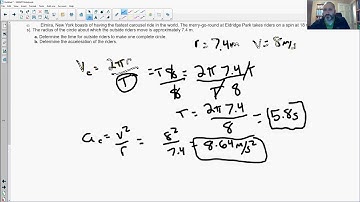 Elmira, New York boasts of having the fastest carousel ride in the world. The merry-go-round at Eldridge Park takes riders on a spin at 18
The radius of the circle about which the outside riders move is approximately 7.4 m.
a. Determine the time for outside riders to make one complete circle.
b. Determine the acceleration of the riders.
r = 7.4m V = 8 m/s
Vc = 2πr / T = T8 / 8 = 2π7.4T / T8
T = 2π7.4 / 8 = 5.8s
ac = V² / r = 8² / 7.4 = 8.64 m/s²